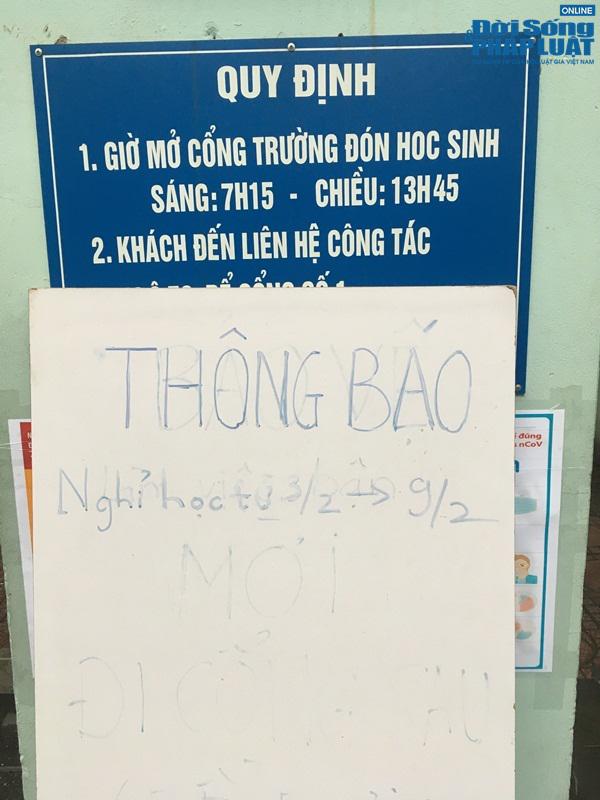 ONLINE
Đời Sống
PHÁP LUẬT
QUY ĐỊNH
1. GIỜ MỞ CỔNG TRƯỜNG ĐÓN HOC SINH
SÁNG: 7H15 - CHIỀU: 13H45
2. KHÁCH ĐẾN LIÊN HỆ CÔNG TÁC
THÔNG BÁO
Nghỉ học từ 3/2 → 9/2
MỜI
ĐI CỔNG SAU
đúng
nCoV